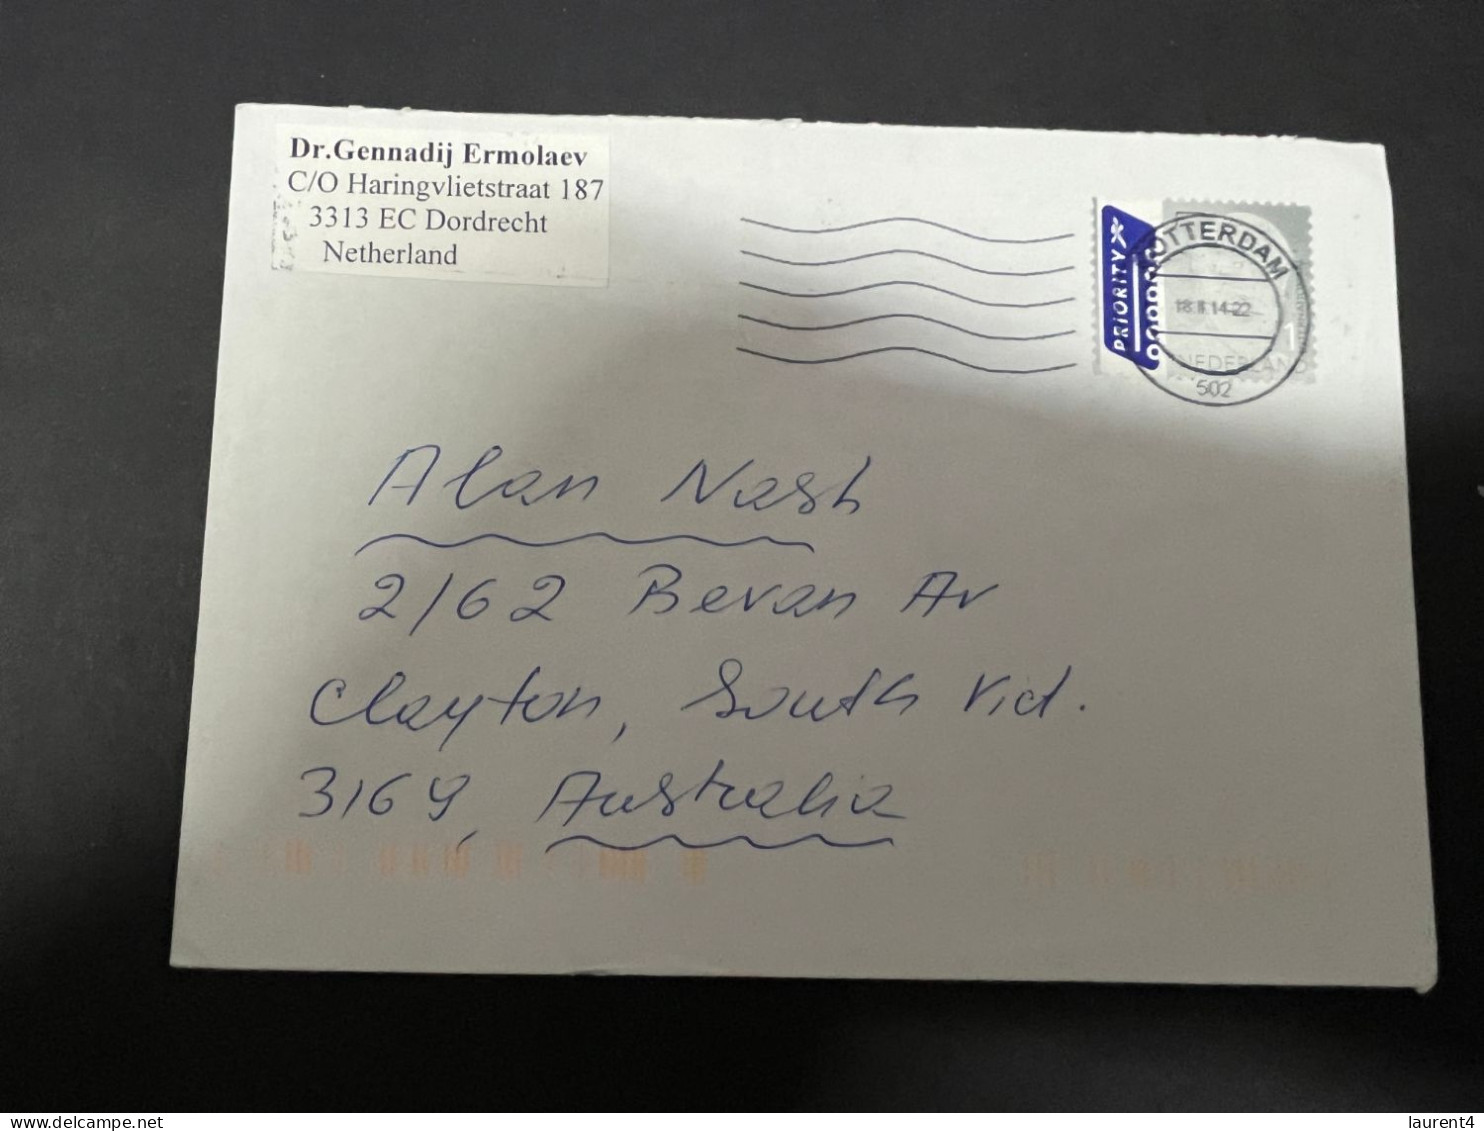 Dr.Gennadij Ermolaev
C/O Haringvlietstraat 187
3313 EC Dordrecht
Netherland
PRIORITY
ROTTERDAM
18.II.14-22
1
NEDERLAND
502
Alan Nash
2/62 Bevan Av
Clayton, South Vict.
3169, Australia
www.delcampe.net
laurent4